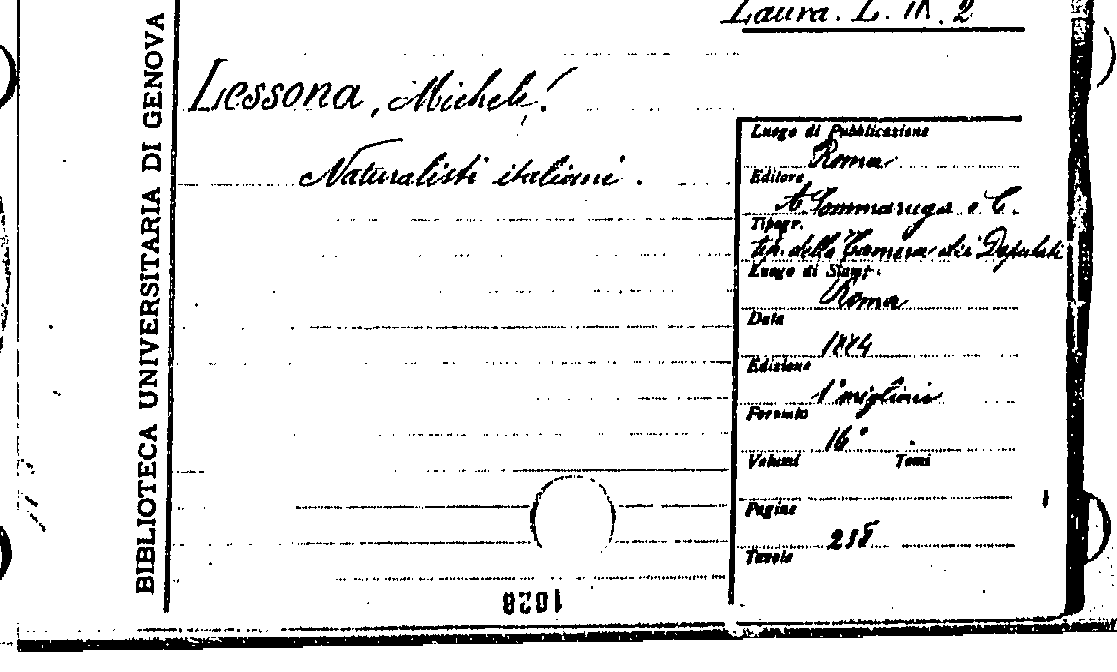 Laura. L. IX. 2
BIBLIOTECA UNIVERSITARIA DI GENOVA
Lessona, Michele.
Naturalisti italiani.
Luogo di Pubblicazione
Roma
Editore
A. Sommaruga e C.
Tipogr.
tip. della Camera dei Deputati
Luogo di Stamp.
Roma
Data
1884
Edizione
1° migliaio
Formato
16°
Volumi Tomi
Pagine
Tavole
1028